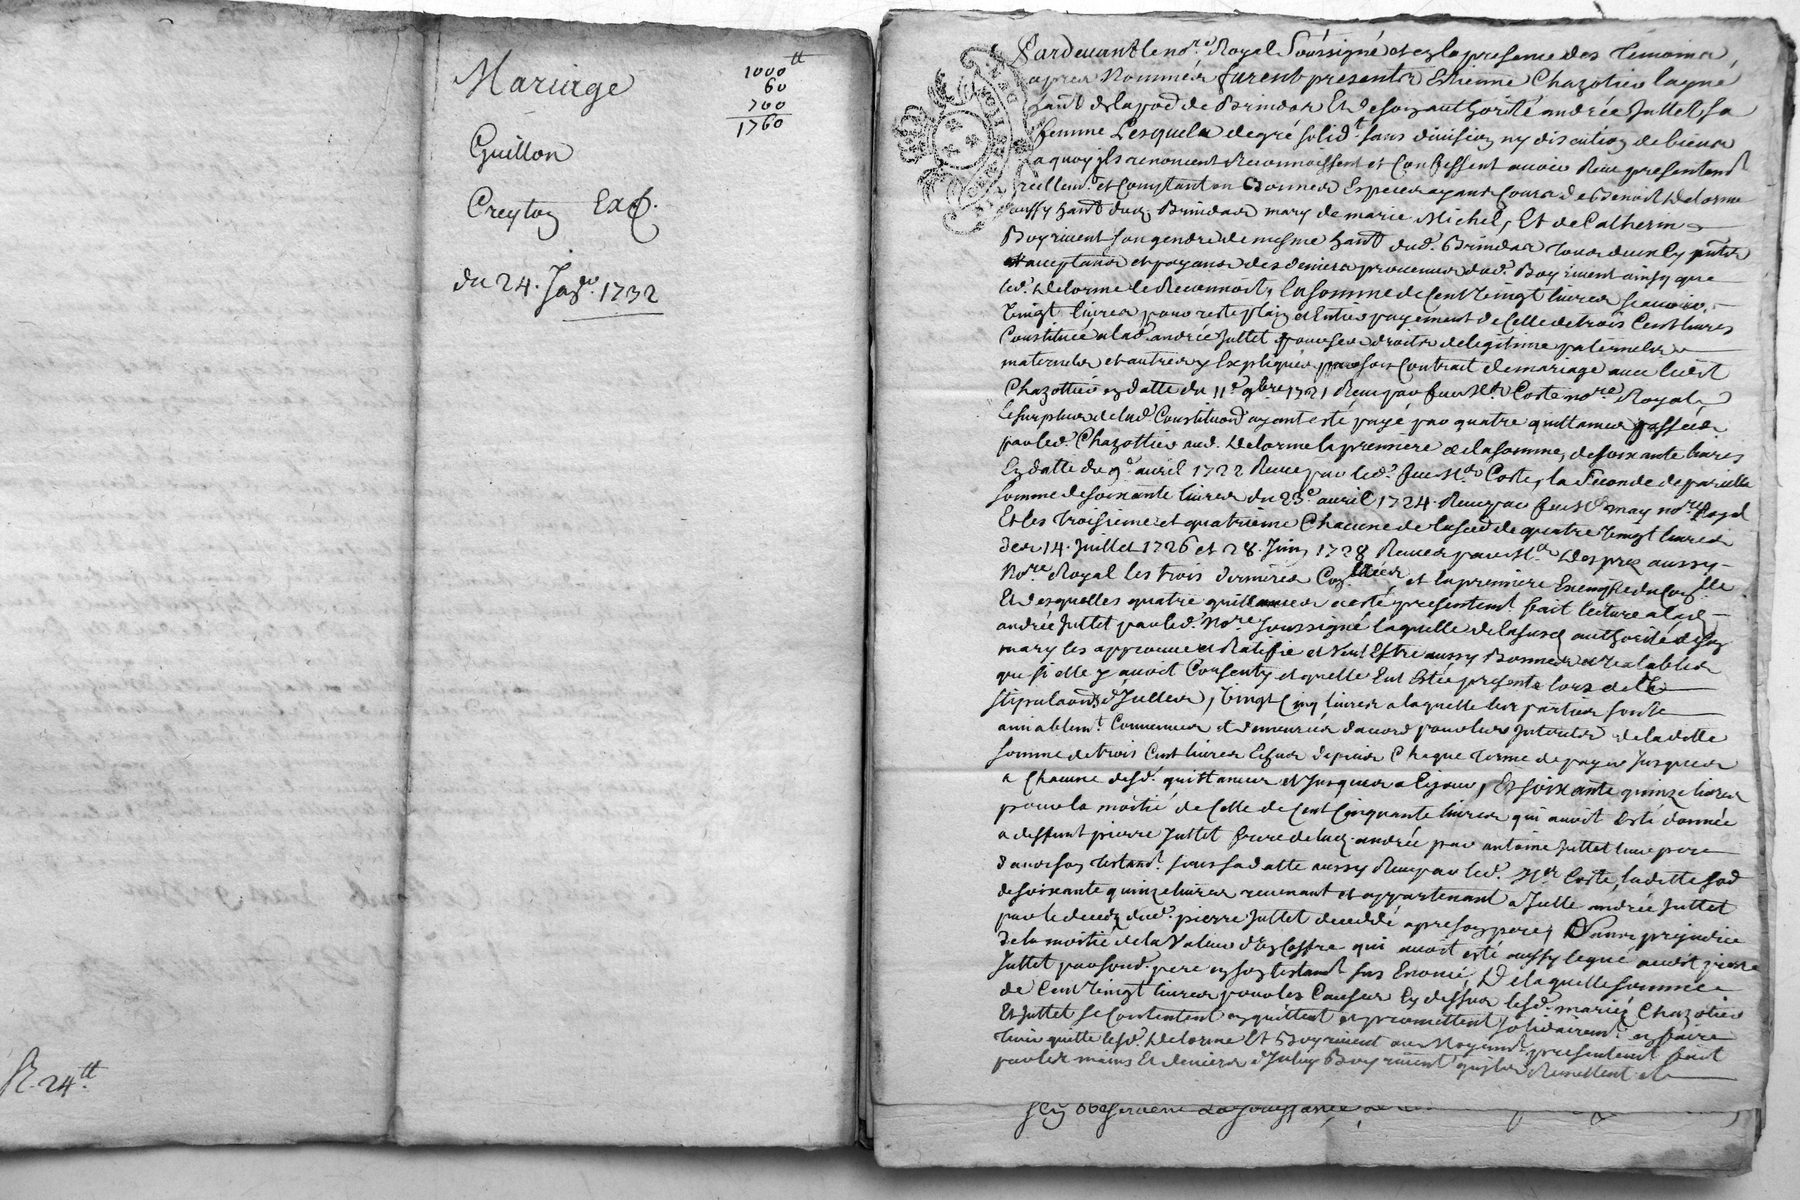 Mariage
1000tt
60
700
1760
Guillon
Creyton Exp.
du 24. Janv. 1732
R. 24tt
Pardevant le nore Royal soussigné et en la presence des temoins
apres nommés furent presents Estienne Chazotier layné
hant de la pod de Brindas Et de son authorité andrée Juttet sa
femme Lesquels de gré solidt sans division ny discution de biens
a quoy ils renoncent Reconnoissent et Confessent avoir Reçu presentemt
reellemt et Comptant en Bonnes Especes ayant Cours de Benoit Delorme
aussy hant dud Brindas mary de marie Michel, Et de Catherin
Boyriuent son gendre de mesme hant dud. Brindas tous deux icy pnts
et acceptans et payans des deniers provenus dud. Boyriuent ainsy que
led. Delorme le Reconnoit, la somme de Cent vingt livres scavoir,
vingt livres pour reste plain et Entier payement de Celle de trois Cent livres
Constituée a lad. andrée Juttet pour ses droits de legitime paternels
maternels et autres y Expliqués par son Contrait de mariage avec ledit
Chazottier en datte du 11e 9bre 1721 Reçu par feu Me Coste nore Royal
le surplus de lad. Constituon ayant esté payé par quatre quittances passées
par led. Chazottier aud. Delorme la premiere de la somme de soixante livres
En datte du 9e avril 1722 Reçue par led. feu Me Coste, la seconde de pareille
somme de soixante livres du 23e avril 1724. Reçue par feu Me may nore Royal
Et les troisieme et quatrième Chacune de la sud de quatre vingt livres
des 14. Juillet 1726 et 28. Juin 1728 Reçues par Me Despres aussy
Nore Royal les trois dernieres et la premiere
Et desquelles quatre quittances a esté presentemt fait lecture a lad.
andrée Juttet par led. Nore soussigné laquelle de la susd authorité de son
mary les approuve et Ratifie et veut Estre aussy Bonnes et valables
que si elle y avoit Consenty et quelle Eut Esté presente lors de la
stipulaon d'Icelles, vingt Cinq livres a laquelle les parties sont
amiablemt Convenues et demeurées dacord pour les Interets de la dotte
somme de trois Cent livres depuis Chaque terme de payer Jusques
a Chacune desd. quittances et Jusques a Ce jour, Et soixante quinze livres
pour la moitié de Celle de Cent Cinquante livres qui avoit Esté donnée
a deffunt pierre Juttet frere de lad. andrée par antoine Juttet leur pere
dans son testamt sous sa datte aussy Reçu par led. Me Coste, laditte sod
de soixante quinze livres revenant et appartenant a Jcelle andrée Juttet
par le deced dud. pierre Juttet decedé apres son pere, Sans prejudice
de la moitié de la valeur d'un Coffre qui avoit esté aussy legué audit pierre
Juttet par sond. pere en son testamt sus Enoncé, De laquelle somme
de Cent vingt livres pour les Causes Cy dessus lesd. mariés Chazotier
Et Juttet se Contentent en quittent et promettent solidairemt en faire
tenir quitte lesd. Delorme Et Boyriuent au Moyent presentemt fait
par les mains Et deniers d'Iceluy Boyriuent qu'ils Remettent et